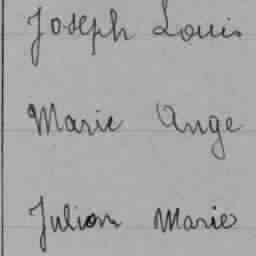 Joseph Louis
Marie Ange
Julien Marie